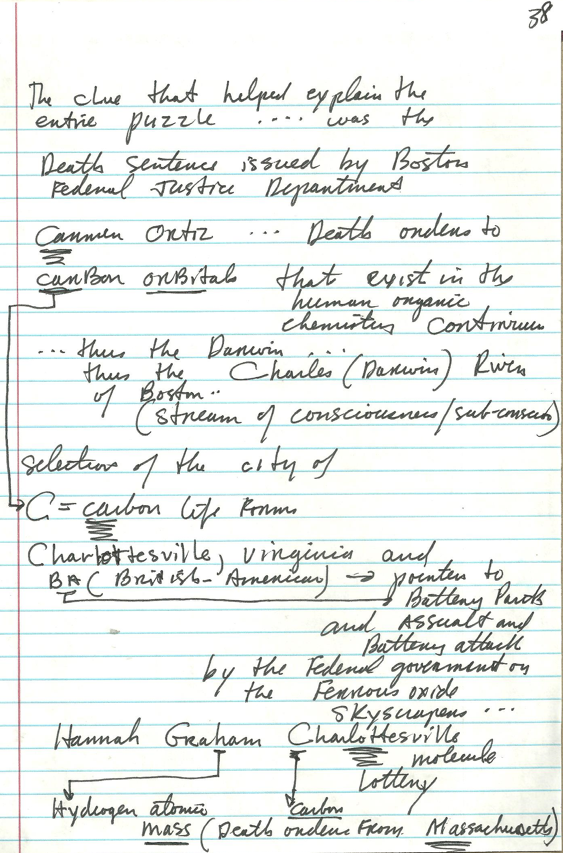 38
The clue that helped explain the
entire puzzle .... was the
Death sentence issued by Boston
Federal Justice Department
Carmen Ortiz ... Death orders to
carBon orBitals that exist in the
human organic
chemistry continium
... thus the Darwin ....
thus the Charles (Darwin) River
of Boston..
(stream of consciousness/sub-conscious)
selection of the city of
C = carbon life forms
Charlottesville, Virginia and
BA (British-American) → pointer to
Battery Park
and ASSualt and
Battery attack
by the Federal government on
the Ferrous oxide
Skyscrapers ...
Hannah Graham Charlottesville
molecule
Lottery
Hydrogen atomic Carbon
mass (Death orders from Massachusetts)